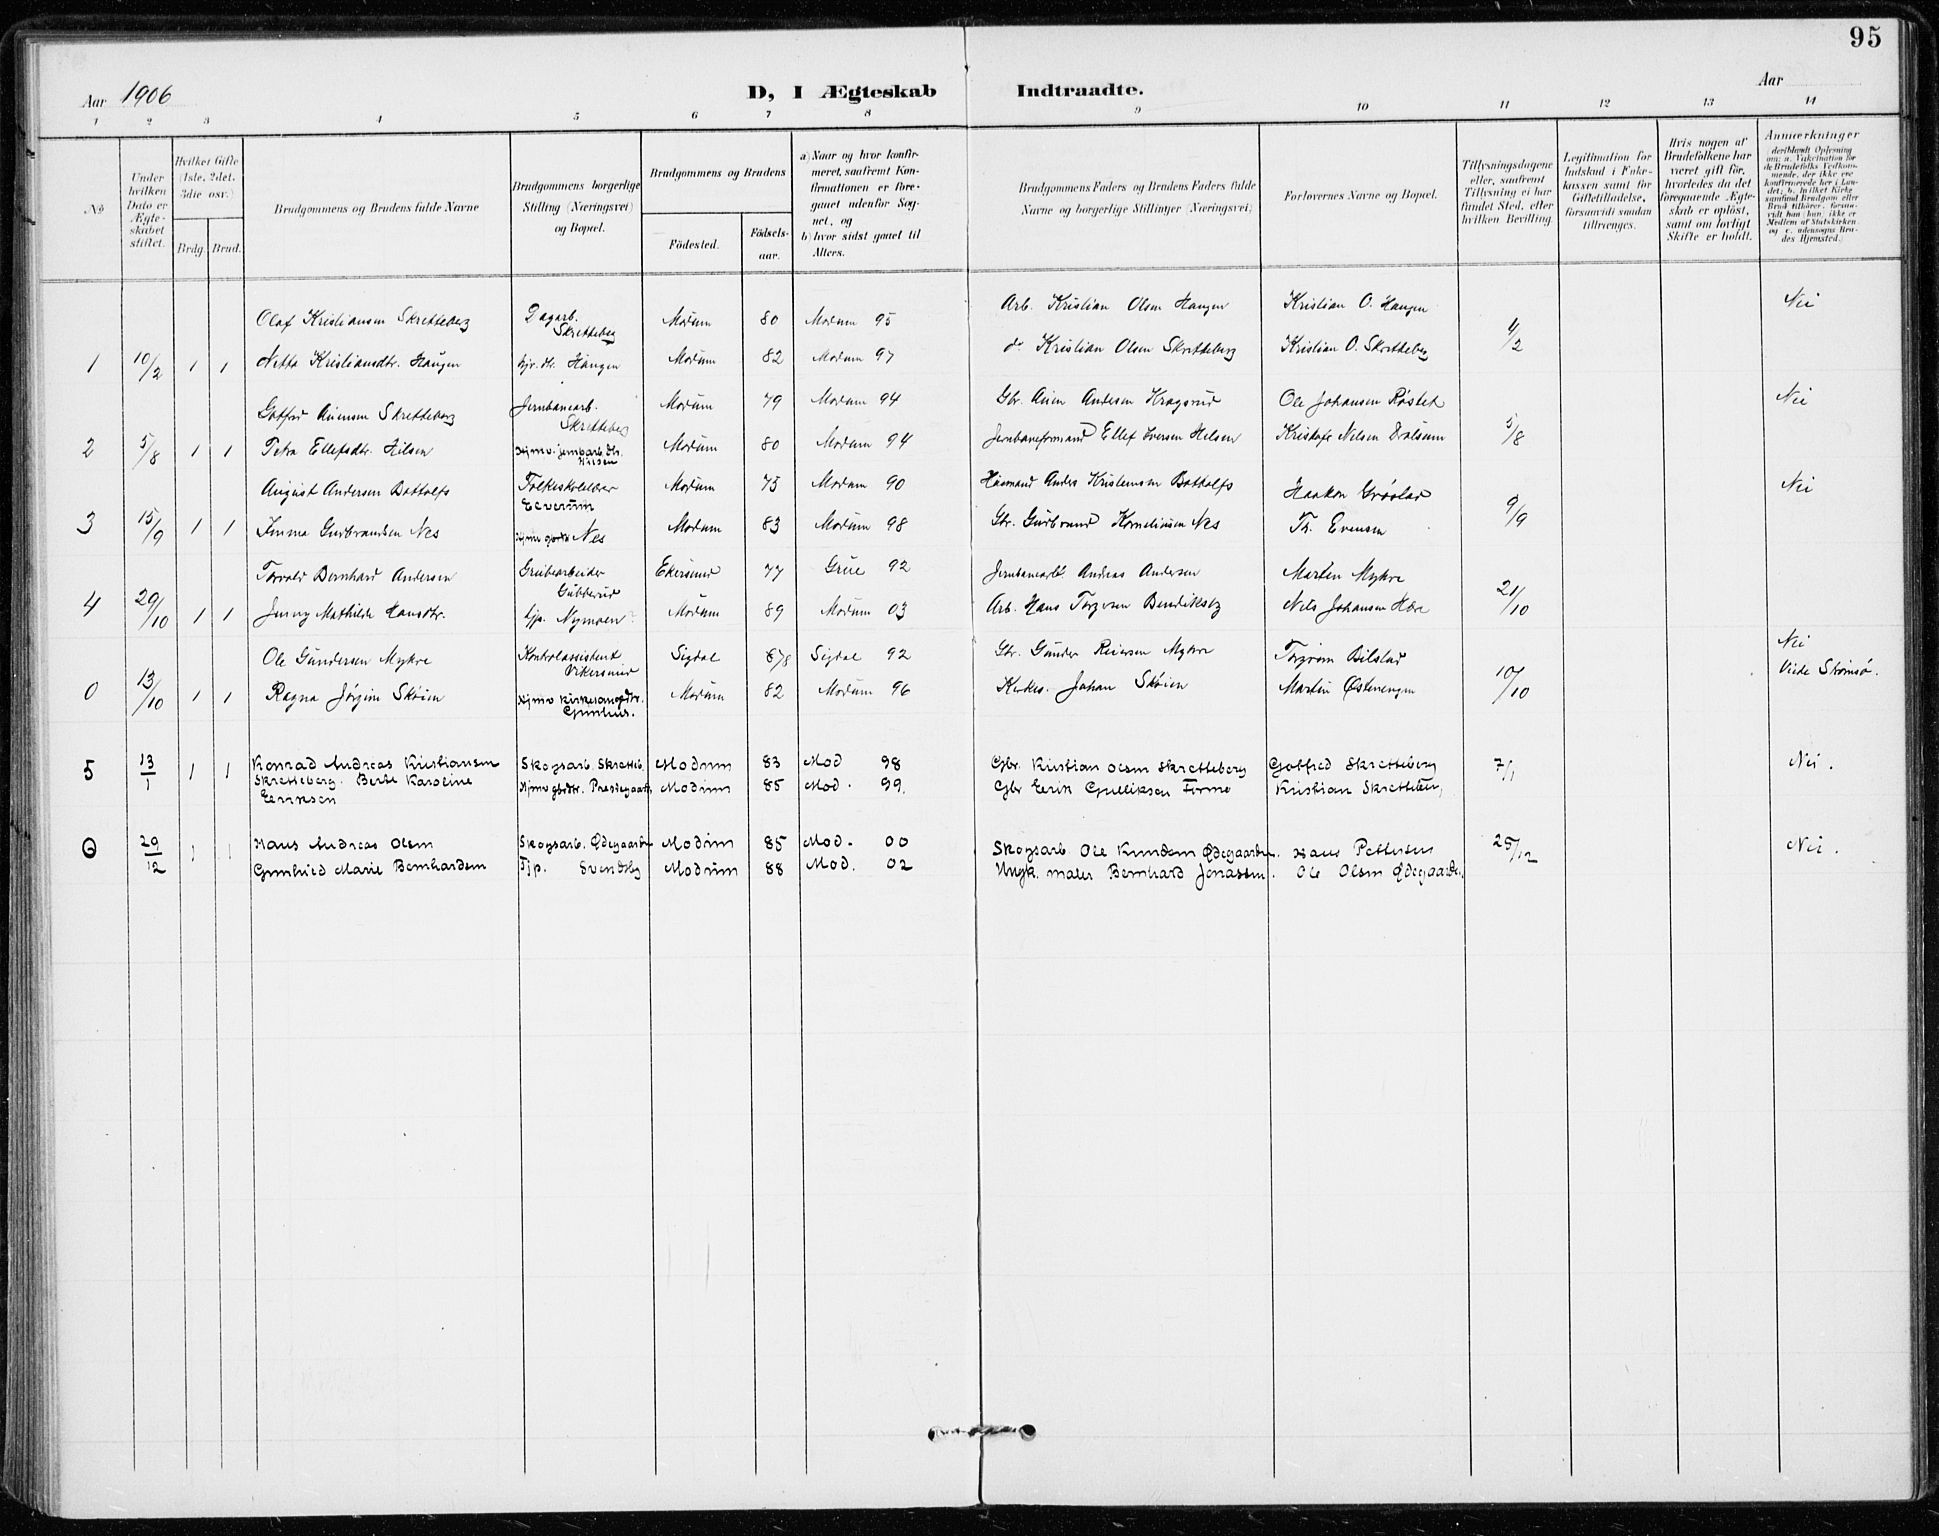 95
Aar 1906
D, I Ægteskab Indtraadte.
Aar
1 2 3 4 5 6 7 8 9 10 11 12 13 14
No
Under hvilken Dato er Ægteskabet stiftet.
Hvilket Gifte (1ste, 2det, 3die osv.)
Brdg. Brud.
Brudgommens og Brudens fulde Navne
Brudgommens borgerlige Stilling (Næringsvei) og Bopæl.
Brudgommens og Brudens
Födested.
Födselsaar.
a) Naar og hvor konfirmeret, saafremt Konfirmationen er foregaaet udenfor Sognet, og
b) hvor sidst gaaet til Alters.
Brudgommens Faders og Brudens Faders fulde Navne og borgerlige Stillinger (Næringsvei)
Forlovernes Navne og Bopæl.
Tillysningsdagene eller, saafremt Tillysning ei har fundet Sted, efter hvilken Bevilling.
Legitimation for Indskud i Enkekassen samt for Giftetilladelse, forsaavidt saadan tiltrænges.
Hvis nogen af Brudefolkene har været gift før, hvorledes da det foregaaende Ægteskab er opløst, samt om lovligt Skifte er holdt.
Anmærkninger (deriblandt Oplysning om: a. Vakcination for de Brudefolks Vedkommende, der ikke ere konfirmerede her i Landet; b. hvilket Kirkesamfund Brudgom eller Brud tilhører, forsaavidt han (hun) ikke er Medlem af Statskirken, og c. udensogns Brudes Hjemsted.)
Olaf Kristiansen Skretteberg Dagarb. Skretteberg Modum 80 Modum 95 Arb. Kristian Olsen Haugen Kristian O. Haugen Nei
1 10/2 1 1 Netta Kristiansdtr. Haugen Haugen Modum 82 Modum 97 do Kristian Olsen Skretteberg Kristian O. Skretteberg 4/2
Gotfred Auensen Skretteberg Jernbanearb. Skretteberg Modum 79 Modum 94 Gbr. Auen Andersen Kragsrud Ole Johansen Nei
2 5/8 1 1 Petra Ellefsdtr. Hilsen Modum 80 Modum 94 Jernbaneformand Ellef Iversen Hilsen Kristofer Nilsen 5/8
August Andersen Bottolfs Folkeskolelærer Elverum Modum 75 Modum 90 Husmand Anders Kristensen Bottolfs Haakon Nei
3 15/9 1 1 Emma Gudbrandsen Nes Nes Modum 83 Modum 98 Gbr. Gudbrand Korneliusen Nes Th. Evensen 9/9
Torvald Bernhard Andersen Grubearbeider Gubberud Ekersund 77 Grue 92 Jernbanearb. Andreas Andersen Marten Myhre
4 29/10 1 1 Jenny Mathilde Hansdtr. tjp. Nymoen Modum 89 Modum 03 Arb. Hans Torgersen Nils Johansen 21/10
Ole Gundersen Myhre Kontrolassistent Vikersund Sigdal 78 Sigdal 92 Gbr. Gunder Reiersen Myhre Torgrim Bilstad Nei
0 13/10 1 1 Ragna Jørgine Skøien Modum 82 Modum 96 Kirkes. Johan Skøien Martin Østerengen 10/10 Viede Strømsø.
5 13/1 1 1 Konrad Andreas Kristiansen Skogsarb. Skretteb. Modum 83 Mod 98 Gbr. Kristian Olsen Skretteberg Gotfred Skretteberg 7/1 Nei.
Skretteberg. Berte Karoline Modum 85 Mod. 99. Gbr Eerik Gulliksen Kristian Skretteberg
Eeriksen
6 29/12 1 1 Hans Andreas Olsen Skogsarb. Ødegaarden Modum 85 Mod. 00 Skogsarb Ole Knudsen Ødegaarden. Hans Pettersen 25/12 Nei.
Gunhild Marie Bernhardsen Tjp. Svendsby Modum 88 Mod. 02 Ungk. maler Bernhard Jonassen. Ole Olsen Ødegaarden.